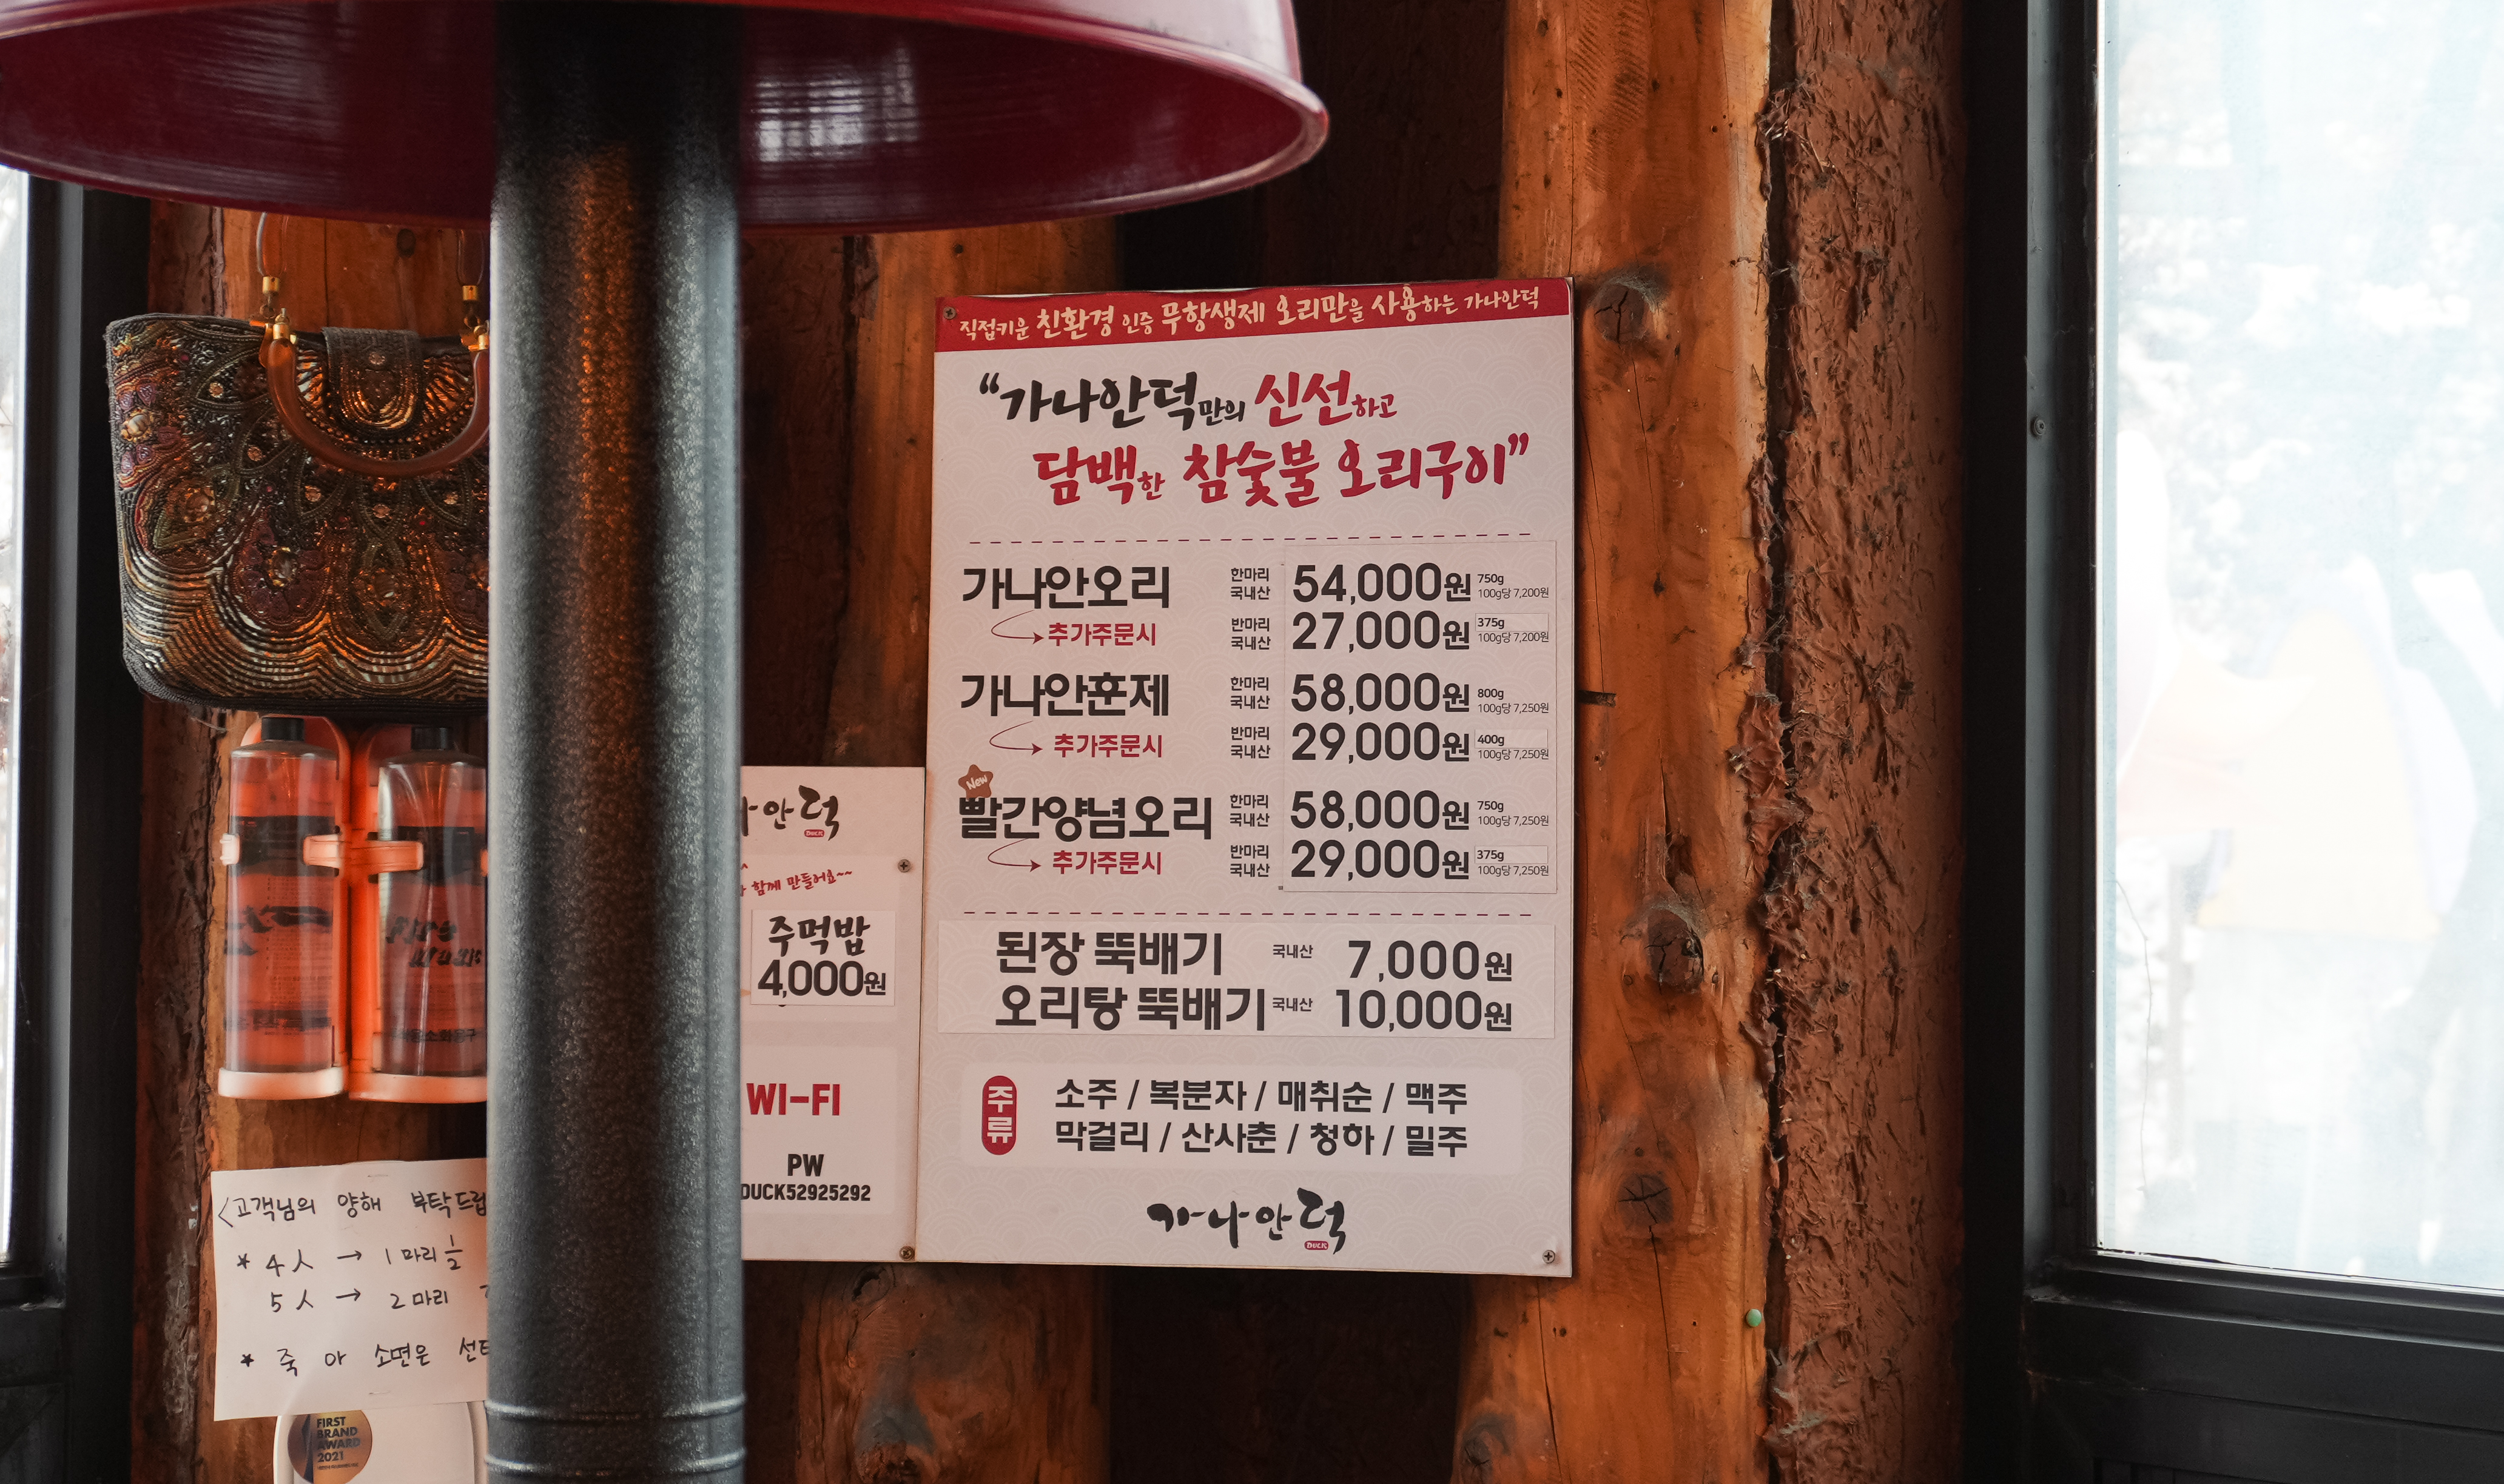 직접키운 친환경 인증 무항생제 오리만을 사용하는 가나안덕
“가나안덕만의 신선하고
담백한 참숯불 오리구이”
가나안오리 한마리 국내산 54,000원 750g 100g당 7,200원
추가주문시 반마리 국내산 27,000원 375g 100g당 7,200원
가나안훈제 한마리 국내산 58,000원 800g 100g당 7,250원
추가주문시 반마리 국내산 29,000원 400g 100g당 7,250원
New
빨간양념오리 한마리 국내산 58,000원 750g 100g당 7,250원
추가주문시 반마리 국내산 29,000원 375g 100g당 7,250원
된장 뚝배기 국내산 7,000원
오리탕 뚝배기 국내산 10,000원
주류
소주 / 복분자 / 매취순 / 맥주
막걸리 / 산사춘 / 청하 / 밀주
가나안덕
DUCK
안덕
DUCK
함께 만들어요~~
주먹밥
4,000원
WI-FI
PW
DUCK52925292
<고객님의 양해 부탁드립
* 4人 → 1마리 1/2
5人 → 2마리
* 죽 아 소면은 선
FIRST
BRAND
AWARD
2021